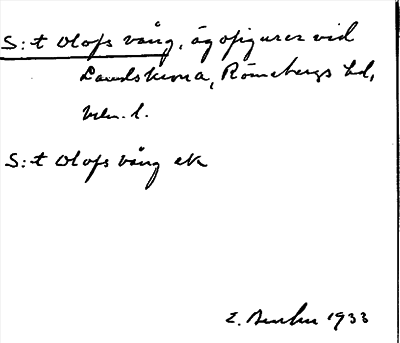 S:t Olofs vång, ägofigurer vid
Landskrona, Rönnebergs hd,
S:t Olofs vång ek
E. 1933